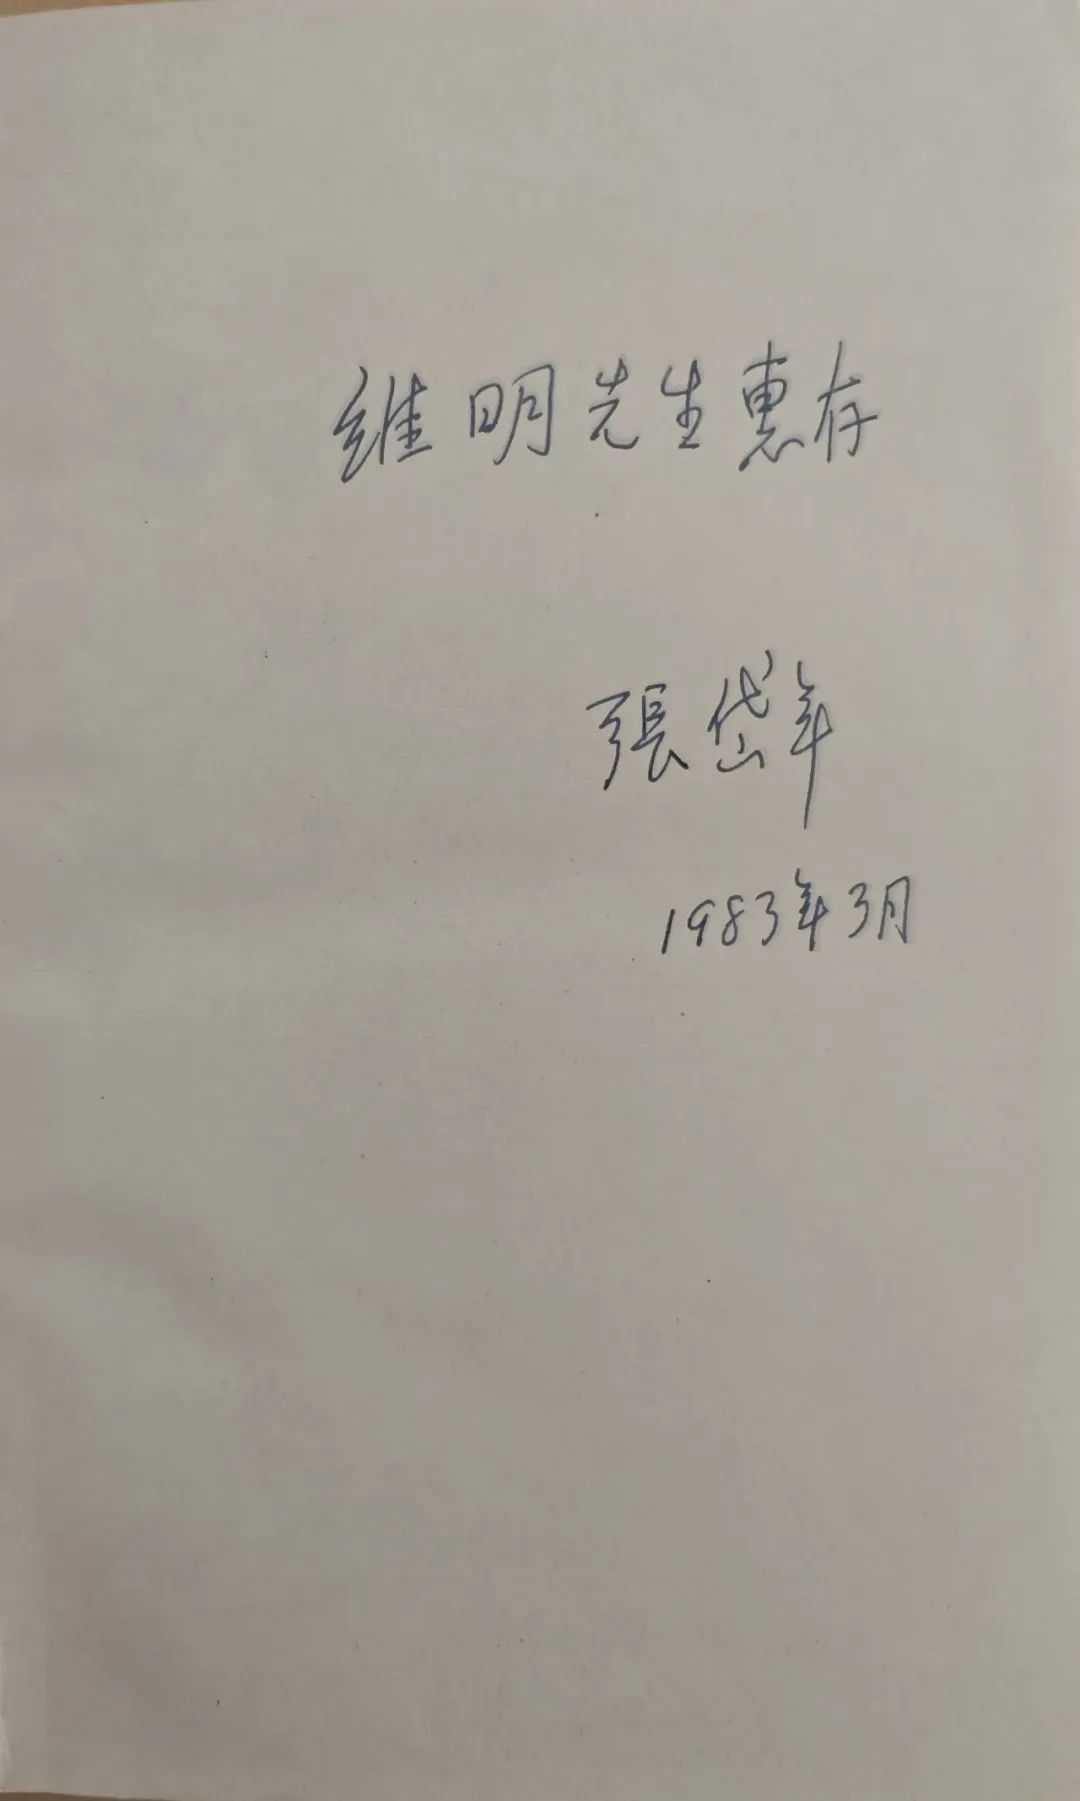 维明先生惠存
張岱年
1983年3月